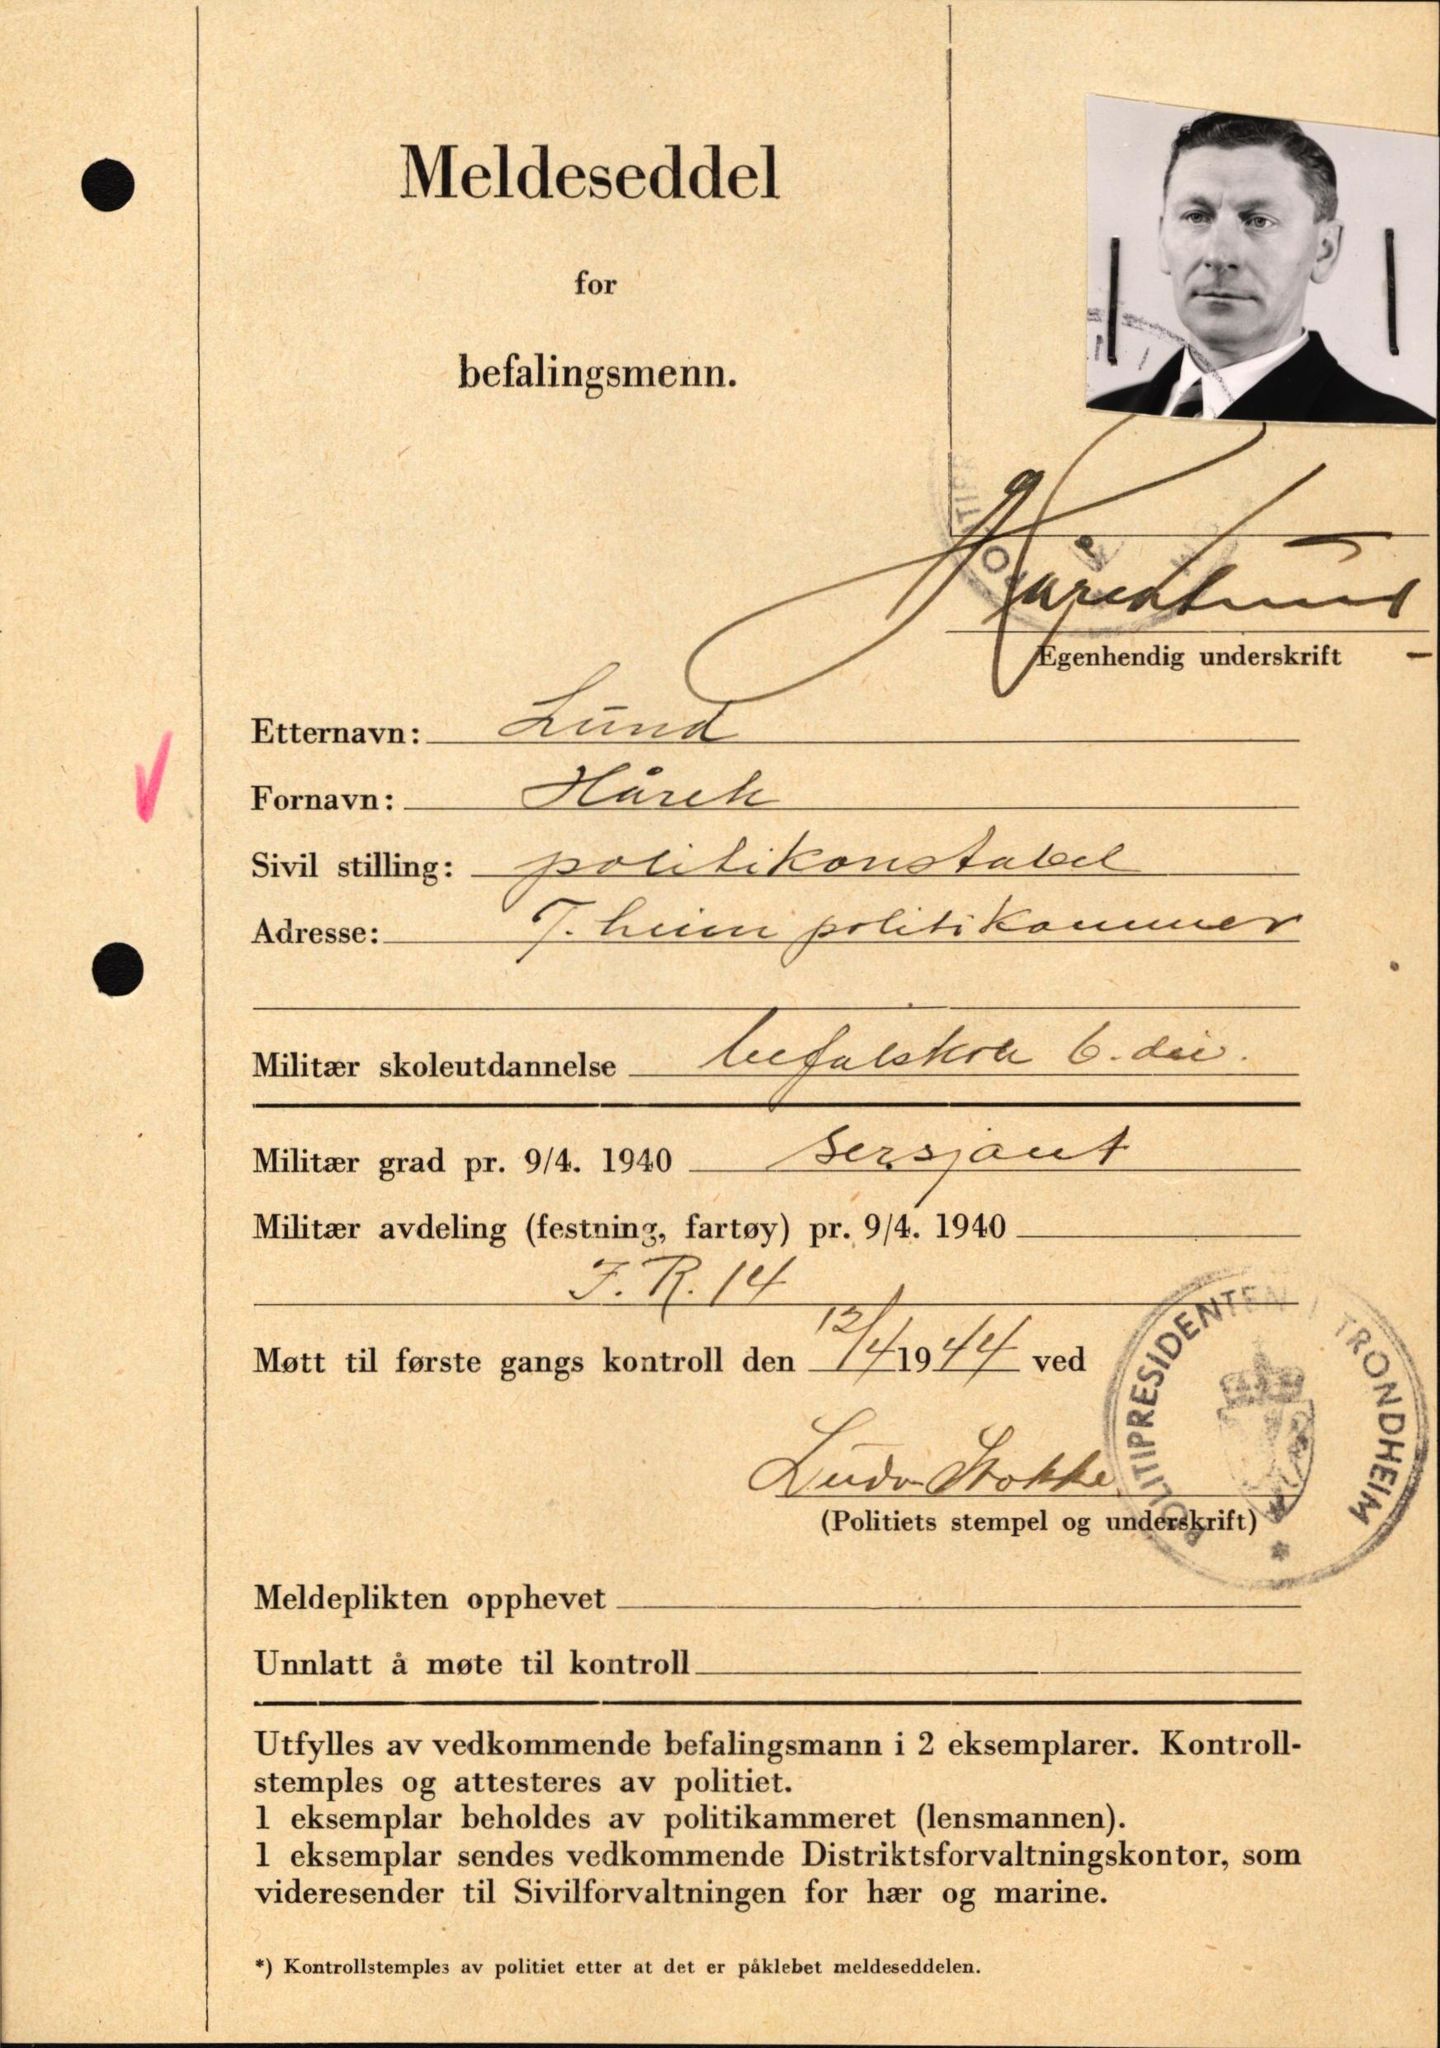 Meldeseddel
for
befalingsmenn.
Hårek Lund
Egenhendig underskrift
Etternavn: Lund
Fornavn: Hårek
Sivil stilling: politikonstabel
Adresse: T.heim politikammer
Militær skoleutdannelse befalskole 6. div.
Militær grad pr. 9/4. 1940 sersjant
Militær avdeling (festning, fartøy) pr. 9/4. 1940
I.R. 14
Møtt til første gangs kontroll den 12/4 1944 ved
POLITIPRESIDENTEN I TRONDHEIM
Ludv Stokke
(Politiets stempel og underskrift)
Meldeplikten opphevet
Unnlatt å møte til kontroll
Utfylles av vedkommende befalingsmann i 2 eksemplarer. Kontroll-
stemples og attesteres av politiet.
1 eksemplar beholdes av politikammeret (lensmannen).
1 eksemplar sendes vedkommende Distriktsforvaltningskontor, som
videresender til Sivilforvaltningen for hær og marine.
*) Kontrollstemples av politiet etter at det er påklebet meldeseddelen.